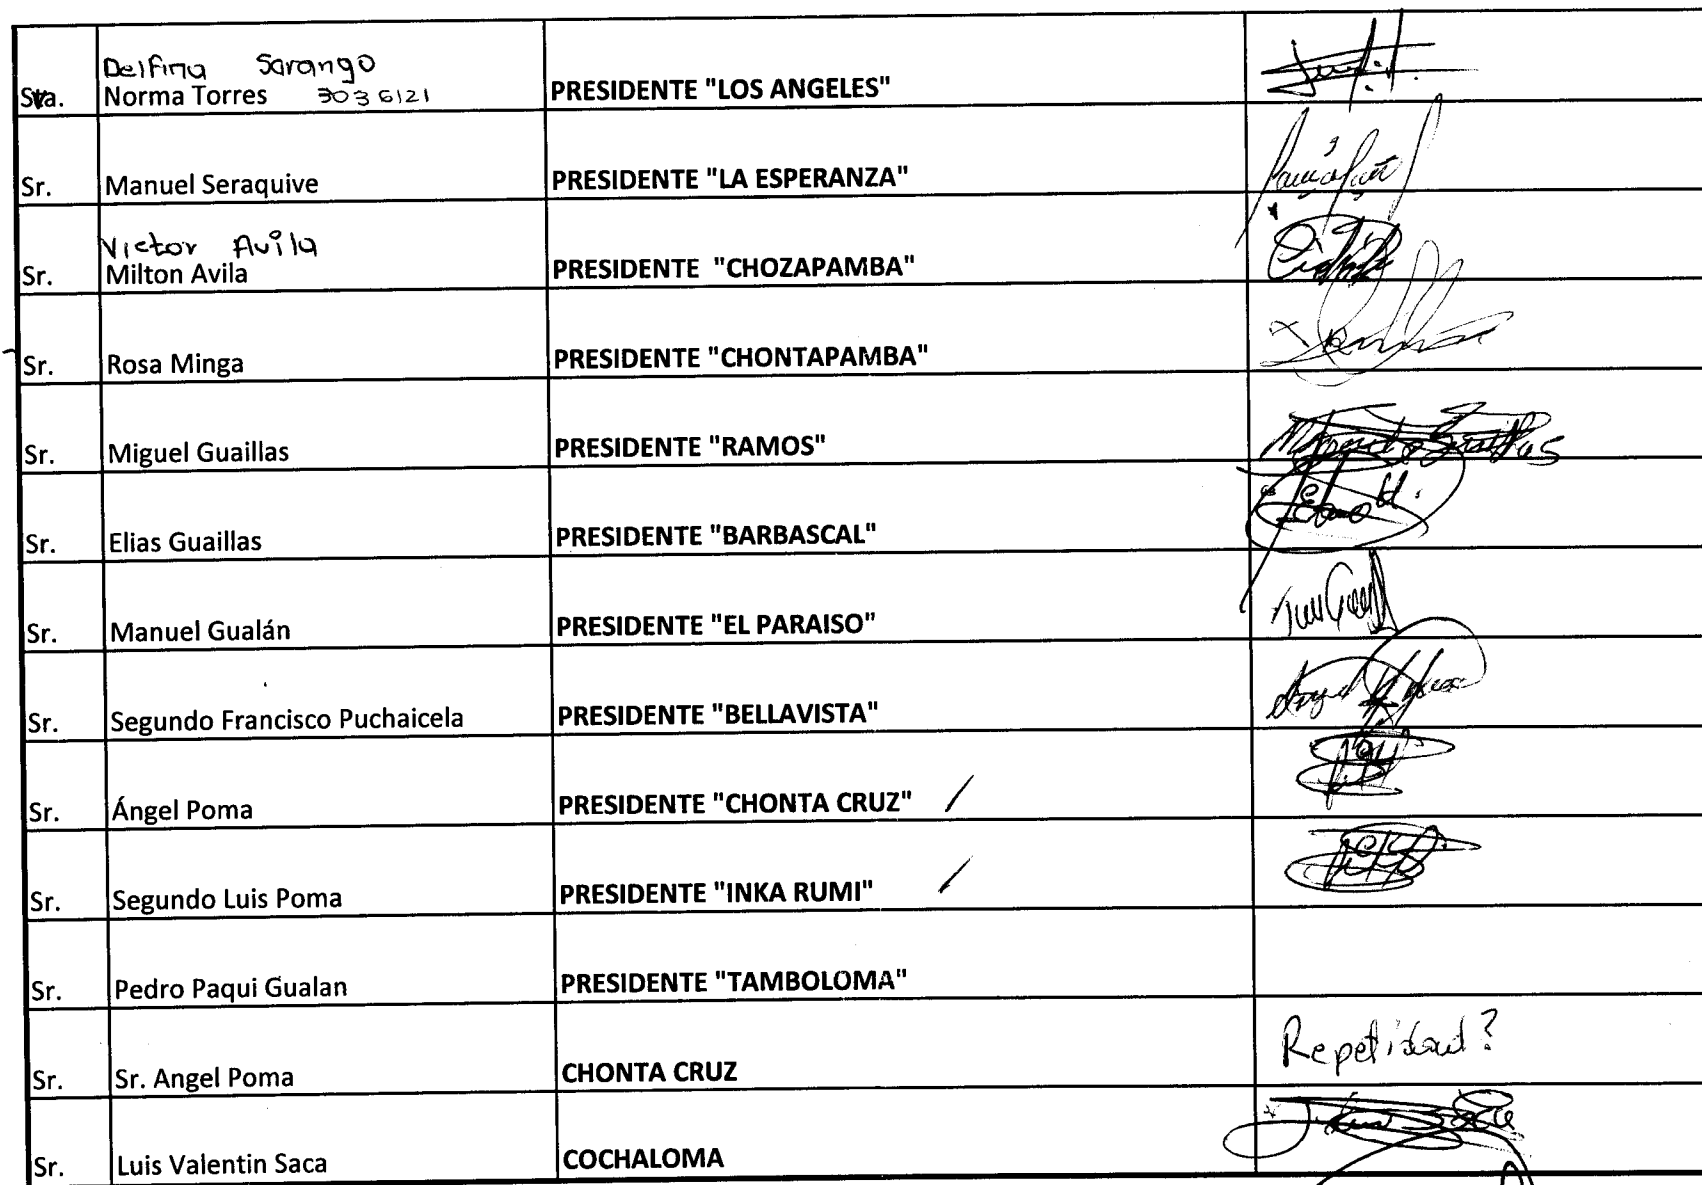 Delfina Sarango
Sra. Norma Torres 3036121 PRESIDENTE "LOS ANGELES"
Sr. Manuel Seraquive PRESIDENTE "LA ESPERANZA"
Victor Avila
Sr. Milton Avila PRESIDENTE "CHOZAPAMBA"
Sr. Rosa Minga PRESIDENTE "CHONTAPAMBA"
Sr. Miguel Guaillas PRESIDENTE "RAMOS"
Sr. Elias Guaillas PRESIDENTE "BARBASCAL"
Sr. Manuel Gualán PRESIDENTE "EL PARAISO"
Sr. Segundo Francisco Puchaicela PRESIDENTE "BELLAVISTA"
Sr. Ángel Poma PRESIDENTE "CHONTA CRUZ" /
Sr. Segundo Luis Poma PRESIDENTE "INKA RUMI" /
Sr. Pedro Paqui Gualan PRESIDENTE "TAMBOLOMA"
Sr. Sr. Angel Poma CHONTA CRUZ
Sr. Luis Valentin Saca COCHALOMA